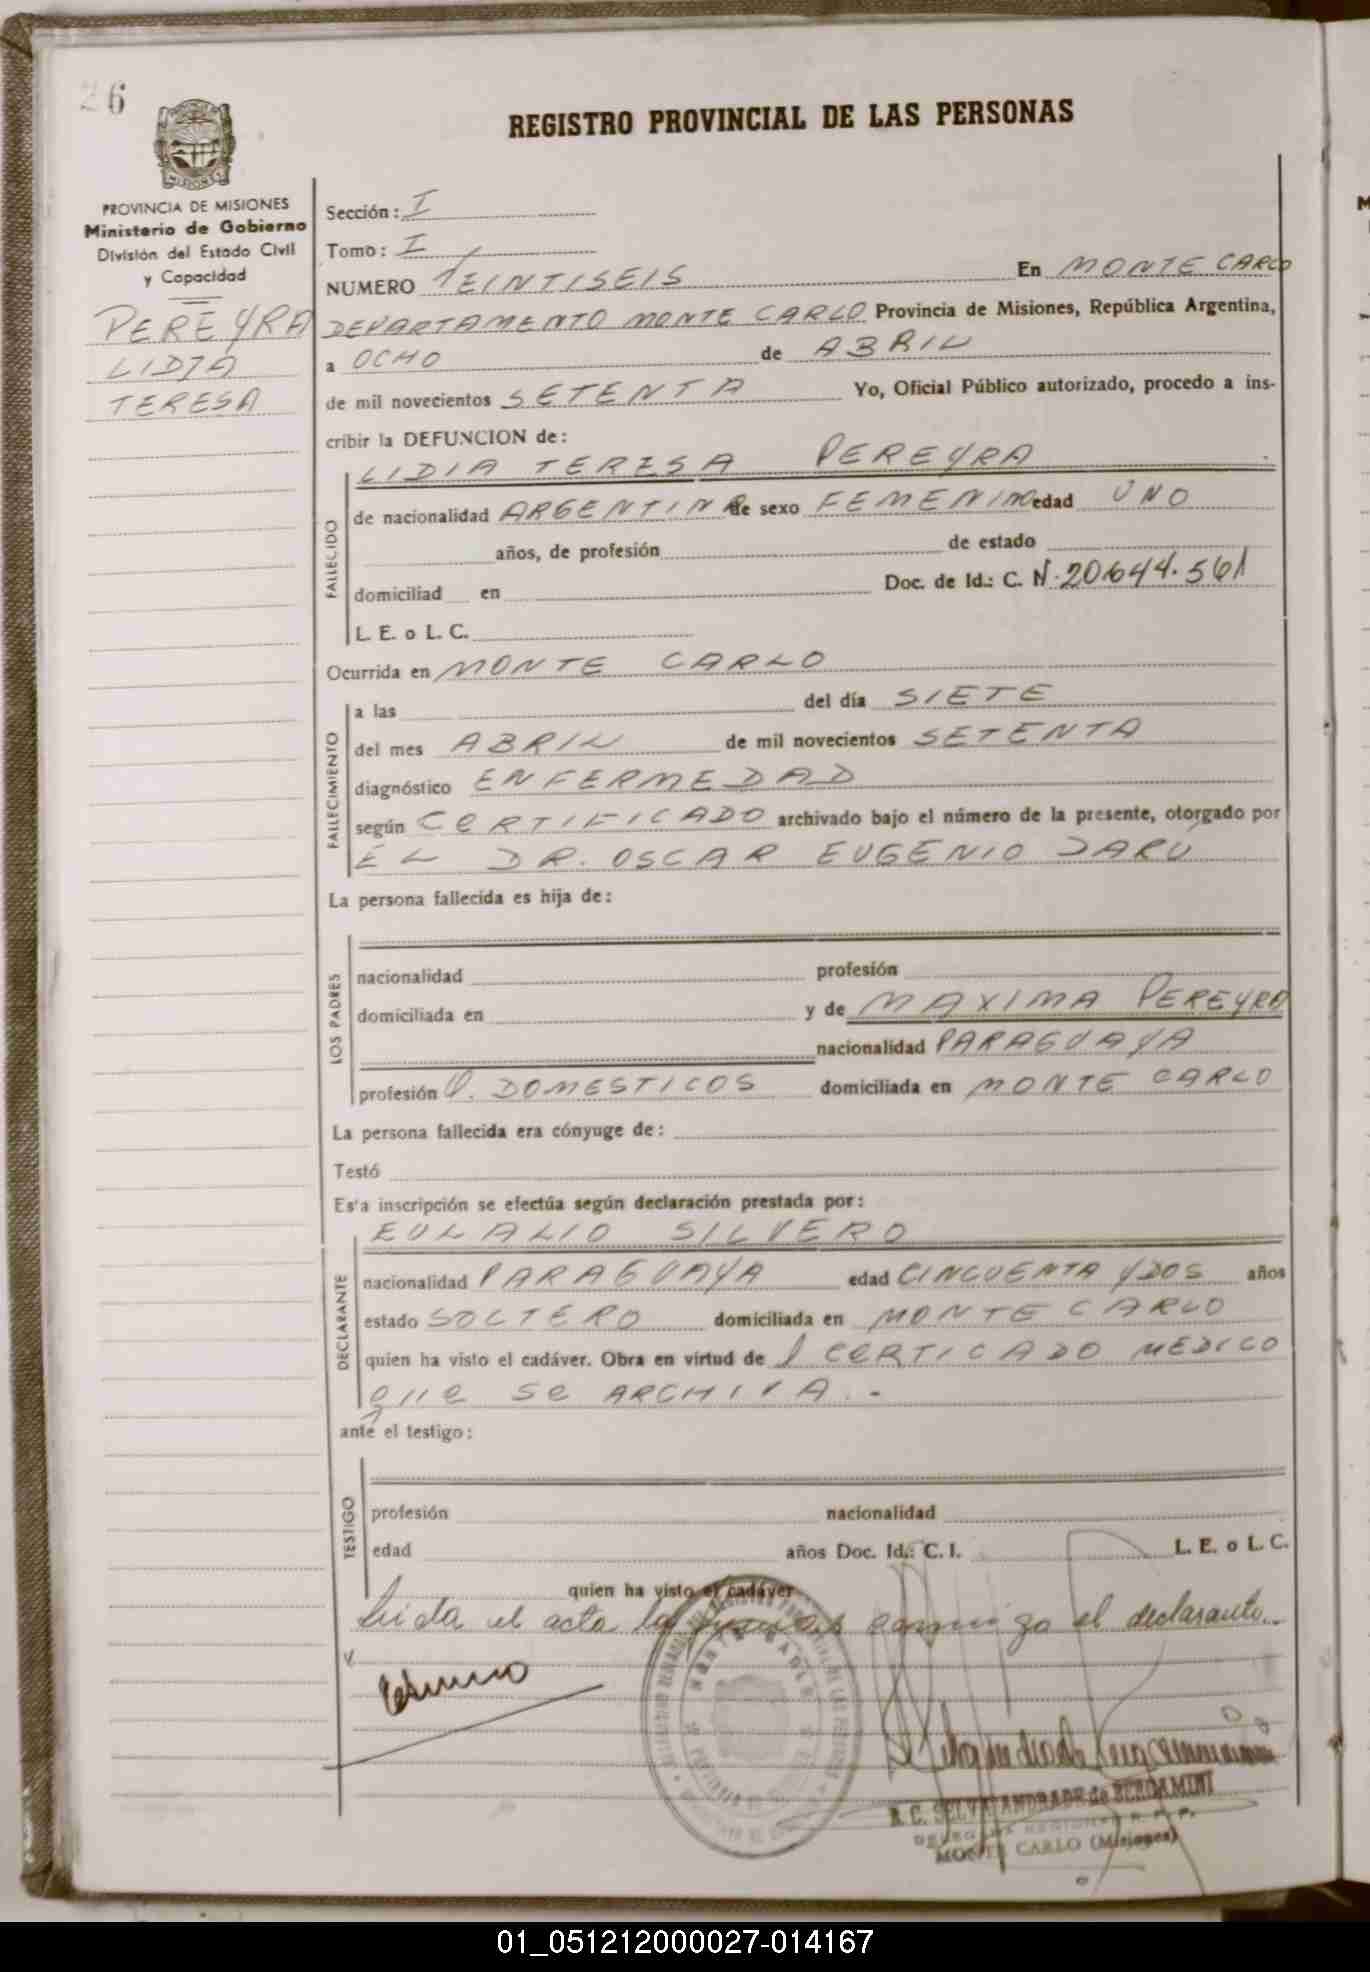 26
REGISTRO PROVINCIAL DE LAS PERSONAS
MISIONES
PROVINCIA DE MISIONES
Ministerio de Gobierno
División del Estado Civil
y Capacidad
PEREYRA
LIDIA
TERESA
Sección: I
Tomo: I
NUMERO VEINTISEIS En MONTE CARLO
DEPARTAMENTO MONTE CARLO Provincia de Misiones, República Argentina,
a OCHO de ABRIL
de mil novecientos SETENTA Yo, Oficial Público autorizado, procedo a ins-
cribir la DEFUNCION de:
LIDIA TERESA PEREYRA
FALLECIDO
de nacionalidad ARGENTINA de sexo FEMENINO edad UNO
años, de profesión de estado
domiciliad en Doc. de Id.: C. N. 20.644.561
L. E. o L. C.
Ocurrida en MONTE CARLO
FALLECIMIENTO
a las del día SIETE
del mes ABRIL de mil novecientos SETENTA
diagnóstico ENFERMEDAD
según CERTIFICADO archivado bajo el número de la presente, otorgado por
EL DR. OSCAR EUGENIO DARÚ
La persona fallecida es hija de:
LOS PADRES
nacionalidad profesión
domiciliada en y de MAXIMA PEREYRA
nacionalidad PARAGUAYA
profesión Q. DOMESTICOS domiciliada en MONTE CARLO
La persona fallecida era cónyuge de:
Testó
Esta inscripción se efectúa según declaración prestada por:
EULALIO SILVERO
DECLARANTE
nacionalidad PARAGUAYA edad CINCUENTA Y DOS años
estado SOLTERO domiciliada en MONTE CARLO
quien ha visto el cadáver. Obra en virtud de l CERTICADO MEDICO
que se ARCHIVA.-
ante el testigo:
TESTIGO
profesión nacionalidad
edad años Doc. Id.: C. I. L. E. o L. C.
quien ha visto el cadáver
Leida el acta la conmigo el declarante.
R. C. SELVA ANDRADE de BERGAMINI
MONTE CARLO (Misiones)
01_051212000027-014167